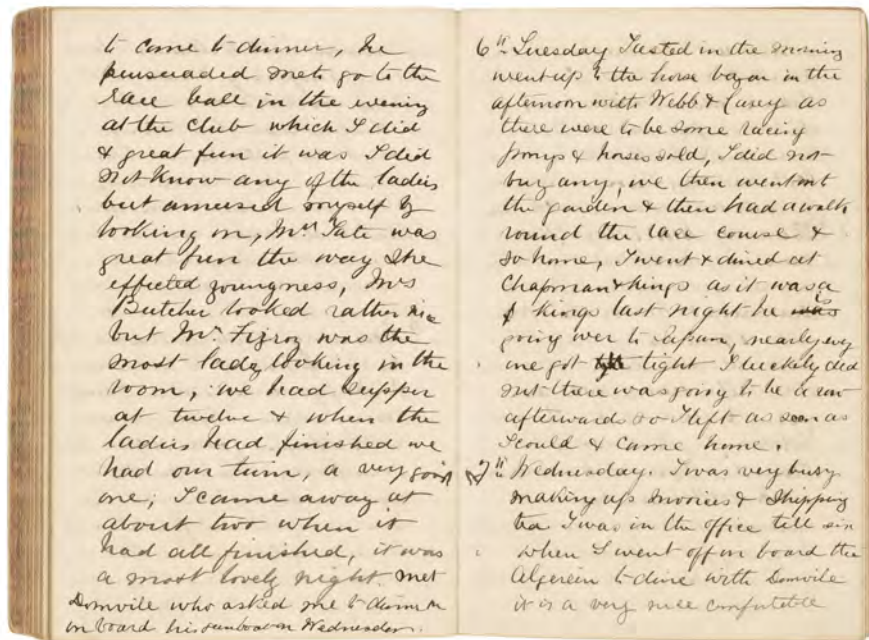 to come to dinner, he
persuaded me to go to the
race ball in the evening
at the club which I did
& great fun it was I did
not know any of the ladies
but amused myself by
looking on, Mrs Tate was
great fun the way she
effected youngness, Mrs
Butcher looked rather nice
but Mrs was the
most lady looking in the
room, we had supper
at twelve & when the
ladies had finished we
had our turn, a very good
one; I came away at
about two when it
had all finished, it was
a most lovely night. met
Domvile who asked me to dinner
on board his gunboat on Wednesday.
6th Tuesday Tasted in the morning
went up to the horse bazar in the
afternoon with Webb & Casey as
there were to be some racing
ponys & horses sold, I did not
buy any, we then went
the garden & then had a walk
round the race course &
so home, I went & dined at
Chapman & Kings as it was a
Kings last night he is
going over to Japan, nearly every
one got tight I luckily did
not there was going to be a row
afterwards so I left as soon as
I could & came home.
7th Wednesday. I was very busy
making up invoices & shipping
tea I was in the office till six
when I went off on board the
Algerein to dine with Domvile
it is a very nice comfortable